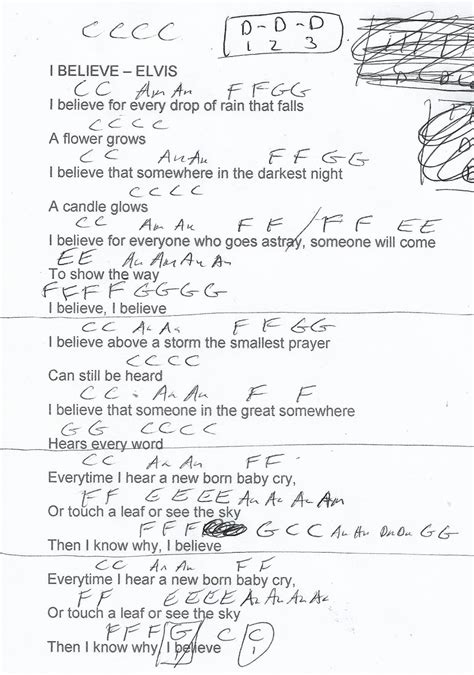 C C C C
D-D-D
1 2 3
I BELIEVE – ELVIS
C C Am Am F F G G
I believe for every drop of rain that falls
C C C C
A flower grows
C C Am Am F F G G
I believe that somewhere in the darkest night
C C C C
A candle glows
C C Am Am F F / F F E E
I believe for everyone who goes astray, someone will come
E E Am Am Am Am
To show the way
F F F F G G G G
I believe, I believe
C C Am Am F F G G
I believe above a storm the smallest prayer
C C C C
Can still be heard
C C Am Am F F
I believe that someone in the great somewhere
G G C C C C
Hears every word
C C Am Am F F
Everytime I hear a new born baby cry,
F F E E E E Am Am Am Am
Or touch a leaf or see the sky
F F F G C C Am Am Dm Dm G G
Then I know why, I believe
C C Am Am F F
Everytime I hear a new born baby cry,
F F E E E E Am Am Am Am
Or touch a leaf or see the sky
F F F G C C
Then I know why, I believe
1 1